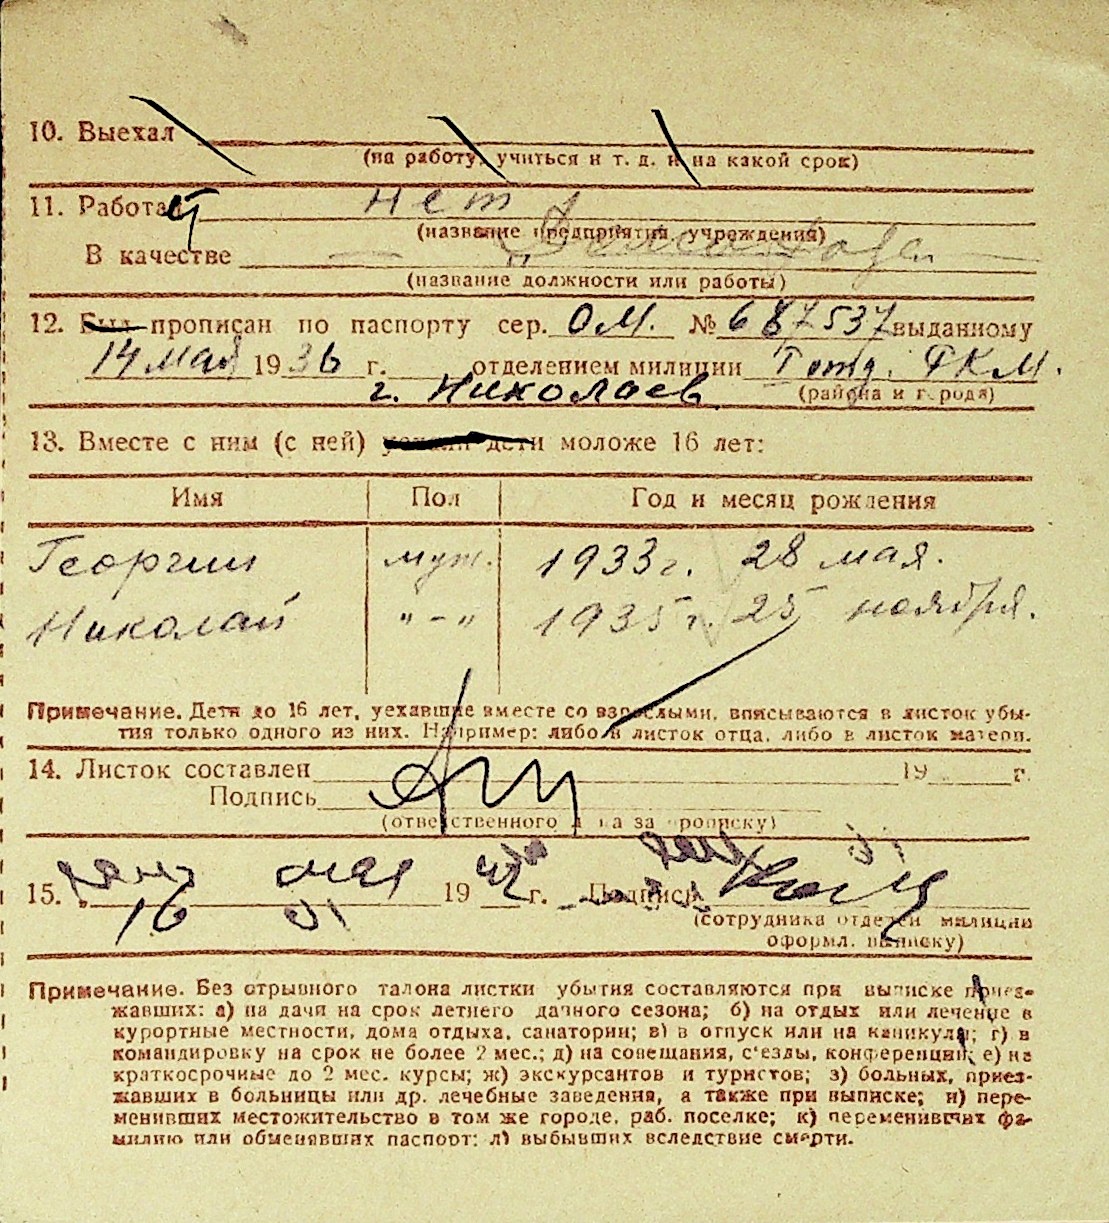 10. Выехал
(на работу, учиться и т. д. и на какой срок)
11. Работает нет
(название предприятия, учреждения)
В качестве — Домохозяй —
(название должности или работы)
12. Был прописан по паспорту сер. ОМ. № 687537 выданному
14 мая 1936 г. отделением милиции I отд. РКМ.
г. Николаев (района и города)
13. Вместе с ним (с ней) уехали дети моложе 16 лет:
Имя Пол Год и месяц рождения
Георгий муж. 1933 г. 28 мая.
Николай "-" 1935 г. 25 ноября.
Примечание. Дети до 16 лет, уехавшие вместе со взрослыми, вписываются в листок убы-
тия только одного из них. Например: либо в листок отца, либо в листок матери.
14. Листок составлен 19 г.
Подпись
(ответственного лица за прописку)
15. „ 16 мая 19 г. Подпись
(сотрудника отделен милиции
оформл. выписку)
Примечание. Без отрывного талона листки убытия составляются при выписке приез-
жавших: а) на дачи на срок летнего дачного сезона; б) на отдых или лечение в
курортные местности, дома отдыха, санатории; в) в отпуск или на каникулы; г) в
командировку на срок не более 2 мес.; д) на совещания, с'езды, конференции; е) на
краткосрочные до 2 мес. курсы; ж) экскурсантов и туристов; з) больных, приез-
жавших в больницы или др. лечебные заведения, а также при выписке; и) пере-
менивших местожительство в том же городе, раб. поселке; к) переменивших фа-
милию или обменявших паспорт; л) выбывших вследствие смерти.